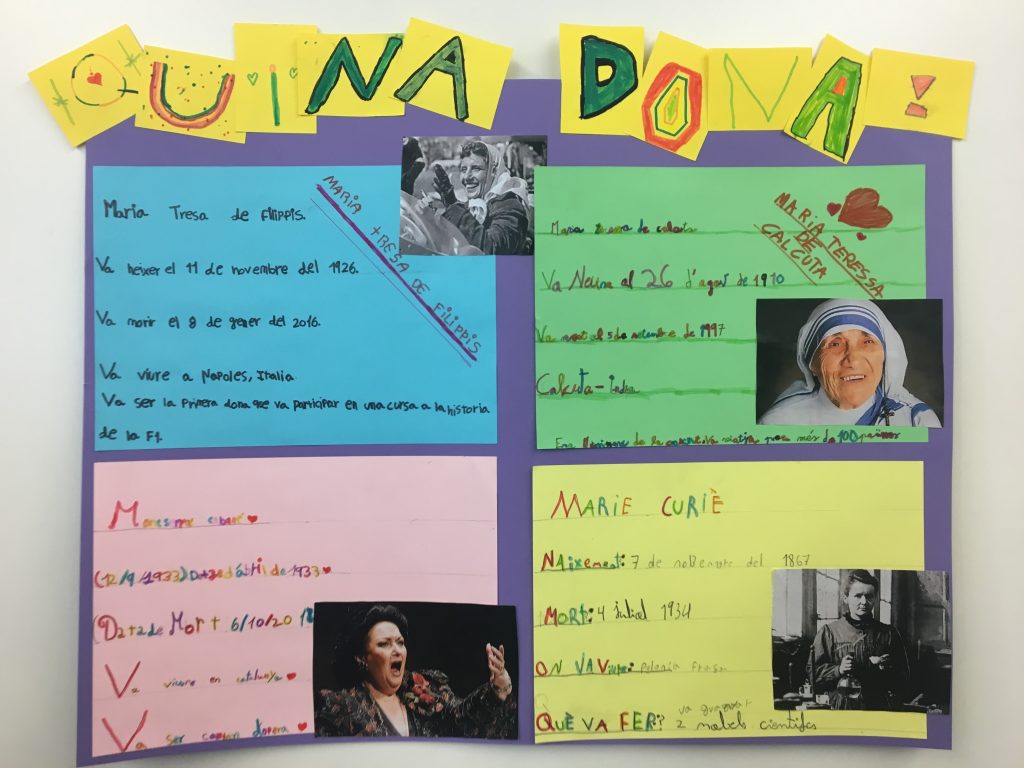 QUINA DONA!
Maria Tresa de Filippis.
MARIA
TRESA DE FILIPPIS
Va heixer el 11 de novembre del 1926.
Va morir el 8 de gener del 2016.
Va viure a Napoles, Italia.
Va ser la Primera dona que va participar en una cursa a la historia
de la F1.
Maria de
MARIA TERESSA
DE
CALCUTA
Va al 26 d'agost de 1910
Va el 5 de setembre de 1997
Calcuta - India
de la més de 100 països
(12/9/1933) d'abril de 1933
Data de Mort 6/10/20
Va viure en catalunya
Va ser dopera
MARIE CURIÈ
NAixement: 7 de nobembre del 1867
MORT: 4 juliol 1934
ON VA Viure: Polonia
QUÈ VA FER? va guanyar
2 nobels cientifcs